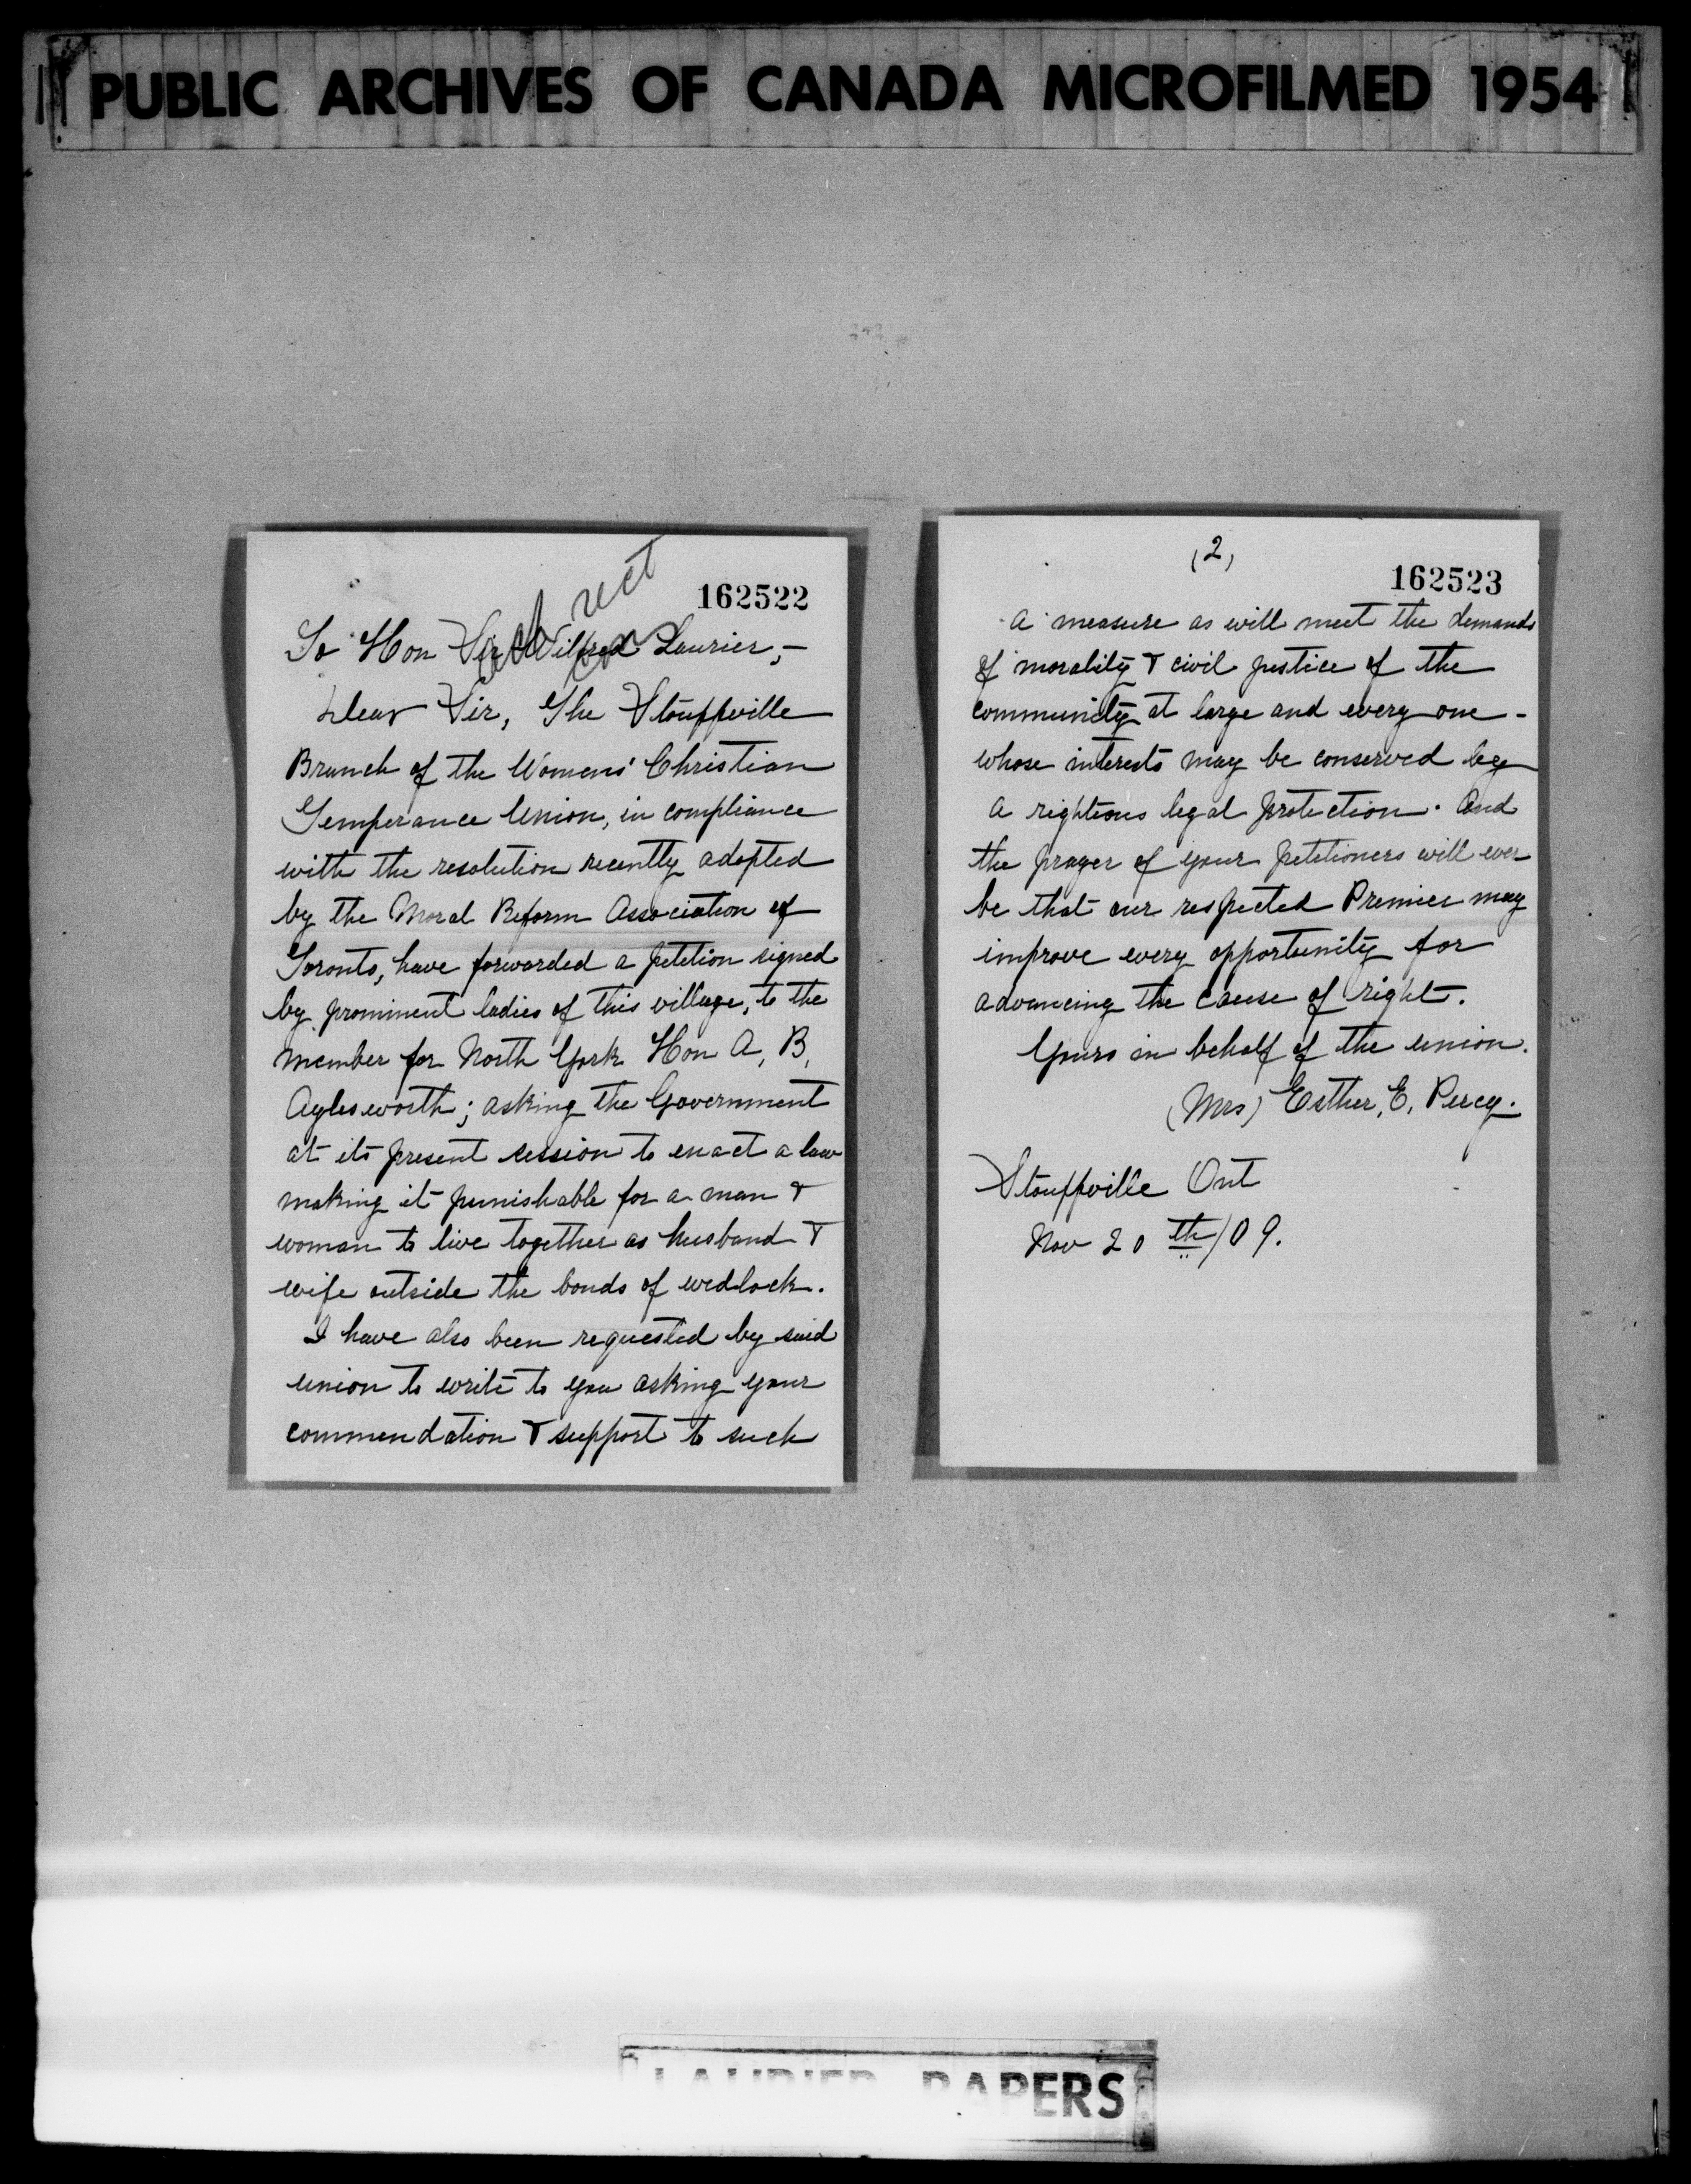 PUBLIC ARCHIVES OF CANADA MICROFILMED 1954
162522
To Hon Sir Wilfred Laurier,-
Dear Sir, The Stouffville
Branch of the Womens' Christian
Temperance Union, in compliance
with the resolution recently adopted
by the Moral Reform Association of
Toronto, have forwarded a petition signed
by prominent ladies of this village, to the
member for North York Hon A, B,
Aylesworth; asking the Government
at its present session to enact a law
making it punishable for a man &
woman to live together as husband &
wife outside the bonds of wedlock.
I have also been requested by said
union to write to you asking your
commendation & support to such
(2)
162523
a measure as will meet the demands
of morality & civil justice of the
community at large and every one-
whose interests may be conserved by
a righteous legal protection. And
the prayer of your petitioners will ever
be that our respected Premier may
improve every opportunity for
advancing the cause of right.
Yours in behalf of the union.
(Mrs) Esther, E, Percy.
Stouffville Ont
Nov 20th/09.
LAURIER PAPERS